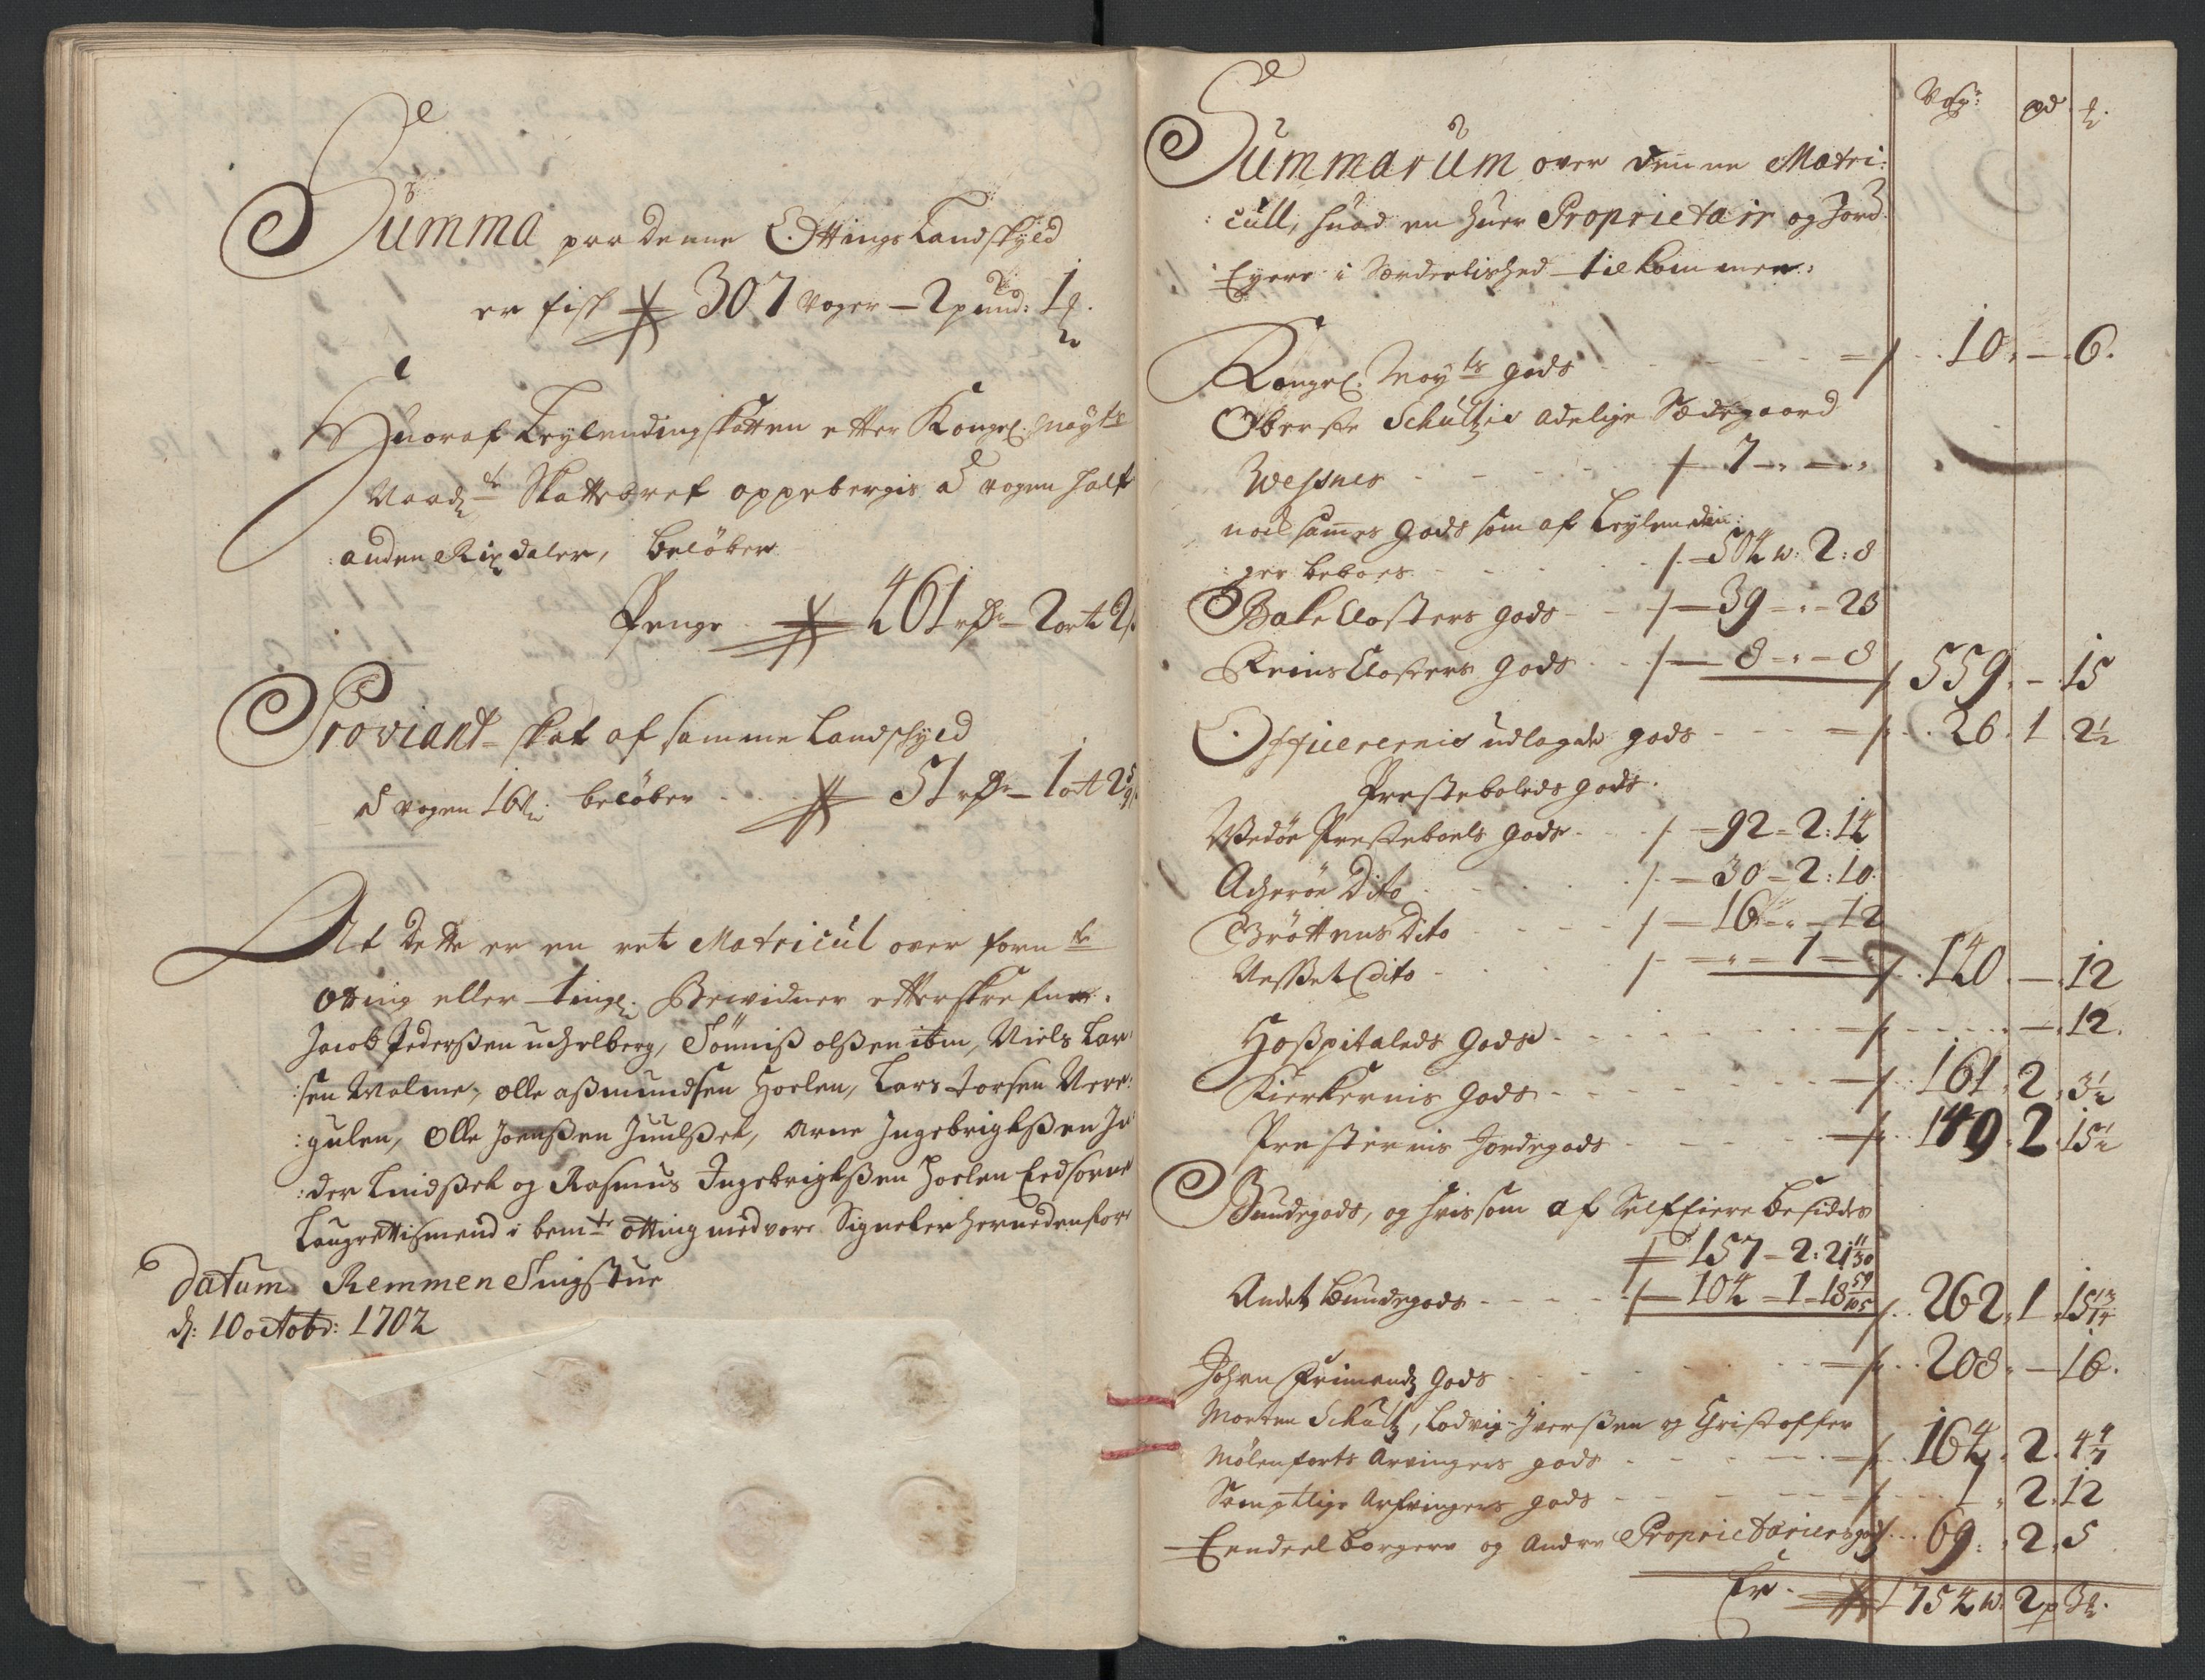 Summa paa denne Ottings Landskyld
er fisk 307 voger – 2 pund: 1 ℔.
Huoraf Leylendingskatten etter Kongel. Mayts
Naadste Skattebref oppebergis a vogen half
anden Rixdaler, beløber
Penge 461 rdr – 2 ort 2
Proviant-skat af samme Landskyld
a vogen 16 s. beløber 51 rdr – 1 ort 2
At dette er en ret Matricul over forn te
otting eller tingl. Bewidner etterskrefne.
Jacob Pedersen , Tönnis olsen ibm, Niels Lar:
:sen Malme, olle asmundsen Hoelen, Lars Larsen Nere:
:gulen, olle Joensen Juulset, Arne Ingebrigtsen
:der Lindset og Rasmus Ingebrigtsen Hoelen Eedsorne
Laugrettismend i bem te otting med vore Signeter hernedenfor
Datum Remmen Tingstue
d: 10 octobr: 1702
Vog: pd ℔.
Summarum over denne Matri:
:cull, huad en huer Proprietair og Jord
Eyere i Særdelished tilkommer:
Kongel. Mayts gods 10 – 6.
Oberste Schultzis adelige Sædegaard
Wessnes 7 – –
noch sammes gods som af Leylendin:
:ger beboes 504 w: 2: 8
Bakke Closters gods 39 – 23
Reins Closters gods 8 – 8 559 – 15
Officerernis udlagde gods 26 1 2½
Prestebolds gods.
Wedöe Prestebols gods 92 – 2: 14
Acheröe Dito 30 – 2: 10
Gröttens Dito 16 – 12
Nesset Dito 1 – 140 – 12
Hospitaleds gods – 12.
Kierkernis gods 161 2 3½
Presternis Jordegods 149 2 15½
Bundegods, og huis som af Selfeiere besiddes
157 – 2: 21 11/30
Andet bundegods 104 – 1 – 18 59/105 262 1 15 13/14
Johan Frimends gods 208 – 16.
Morten Schultz, Lodvig Iversen og Christoffer
Mølenforts Arvingers gods 164 2 4 4/7
Samptlige Arfvingers gods 1 2 12
Eendeel borgere og Andre Proprietariers gods 69 2 5
Er 1754 w: 2 p 3 ℔.